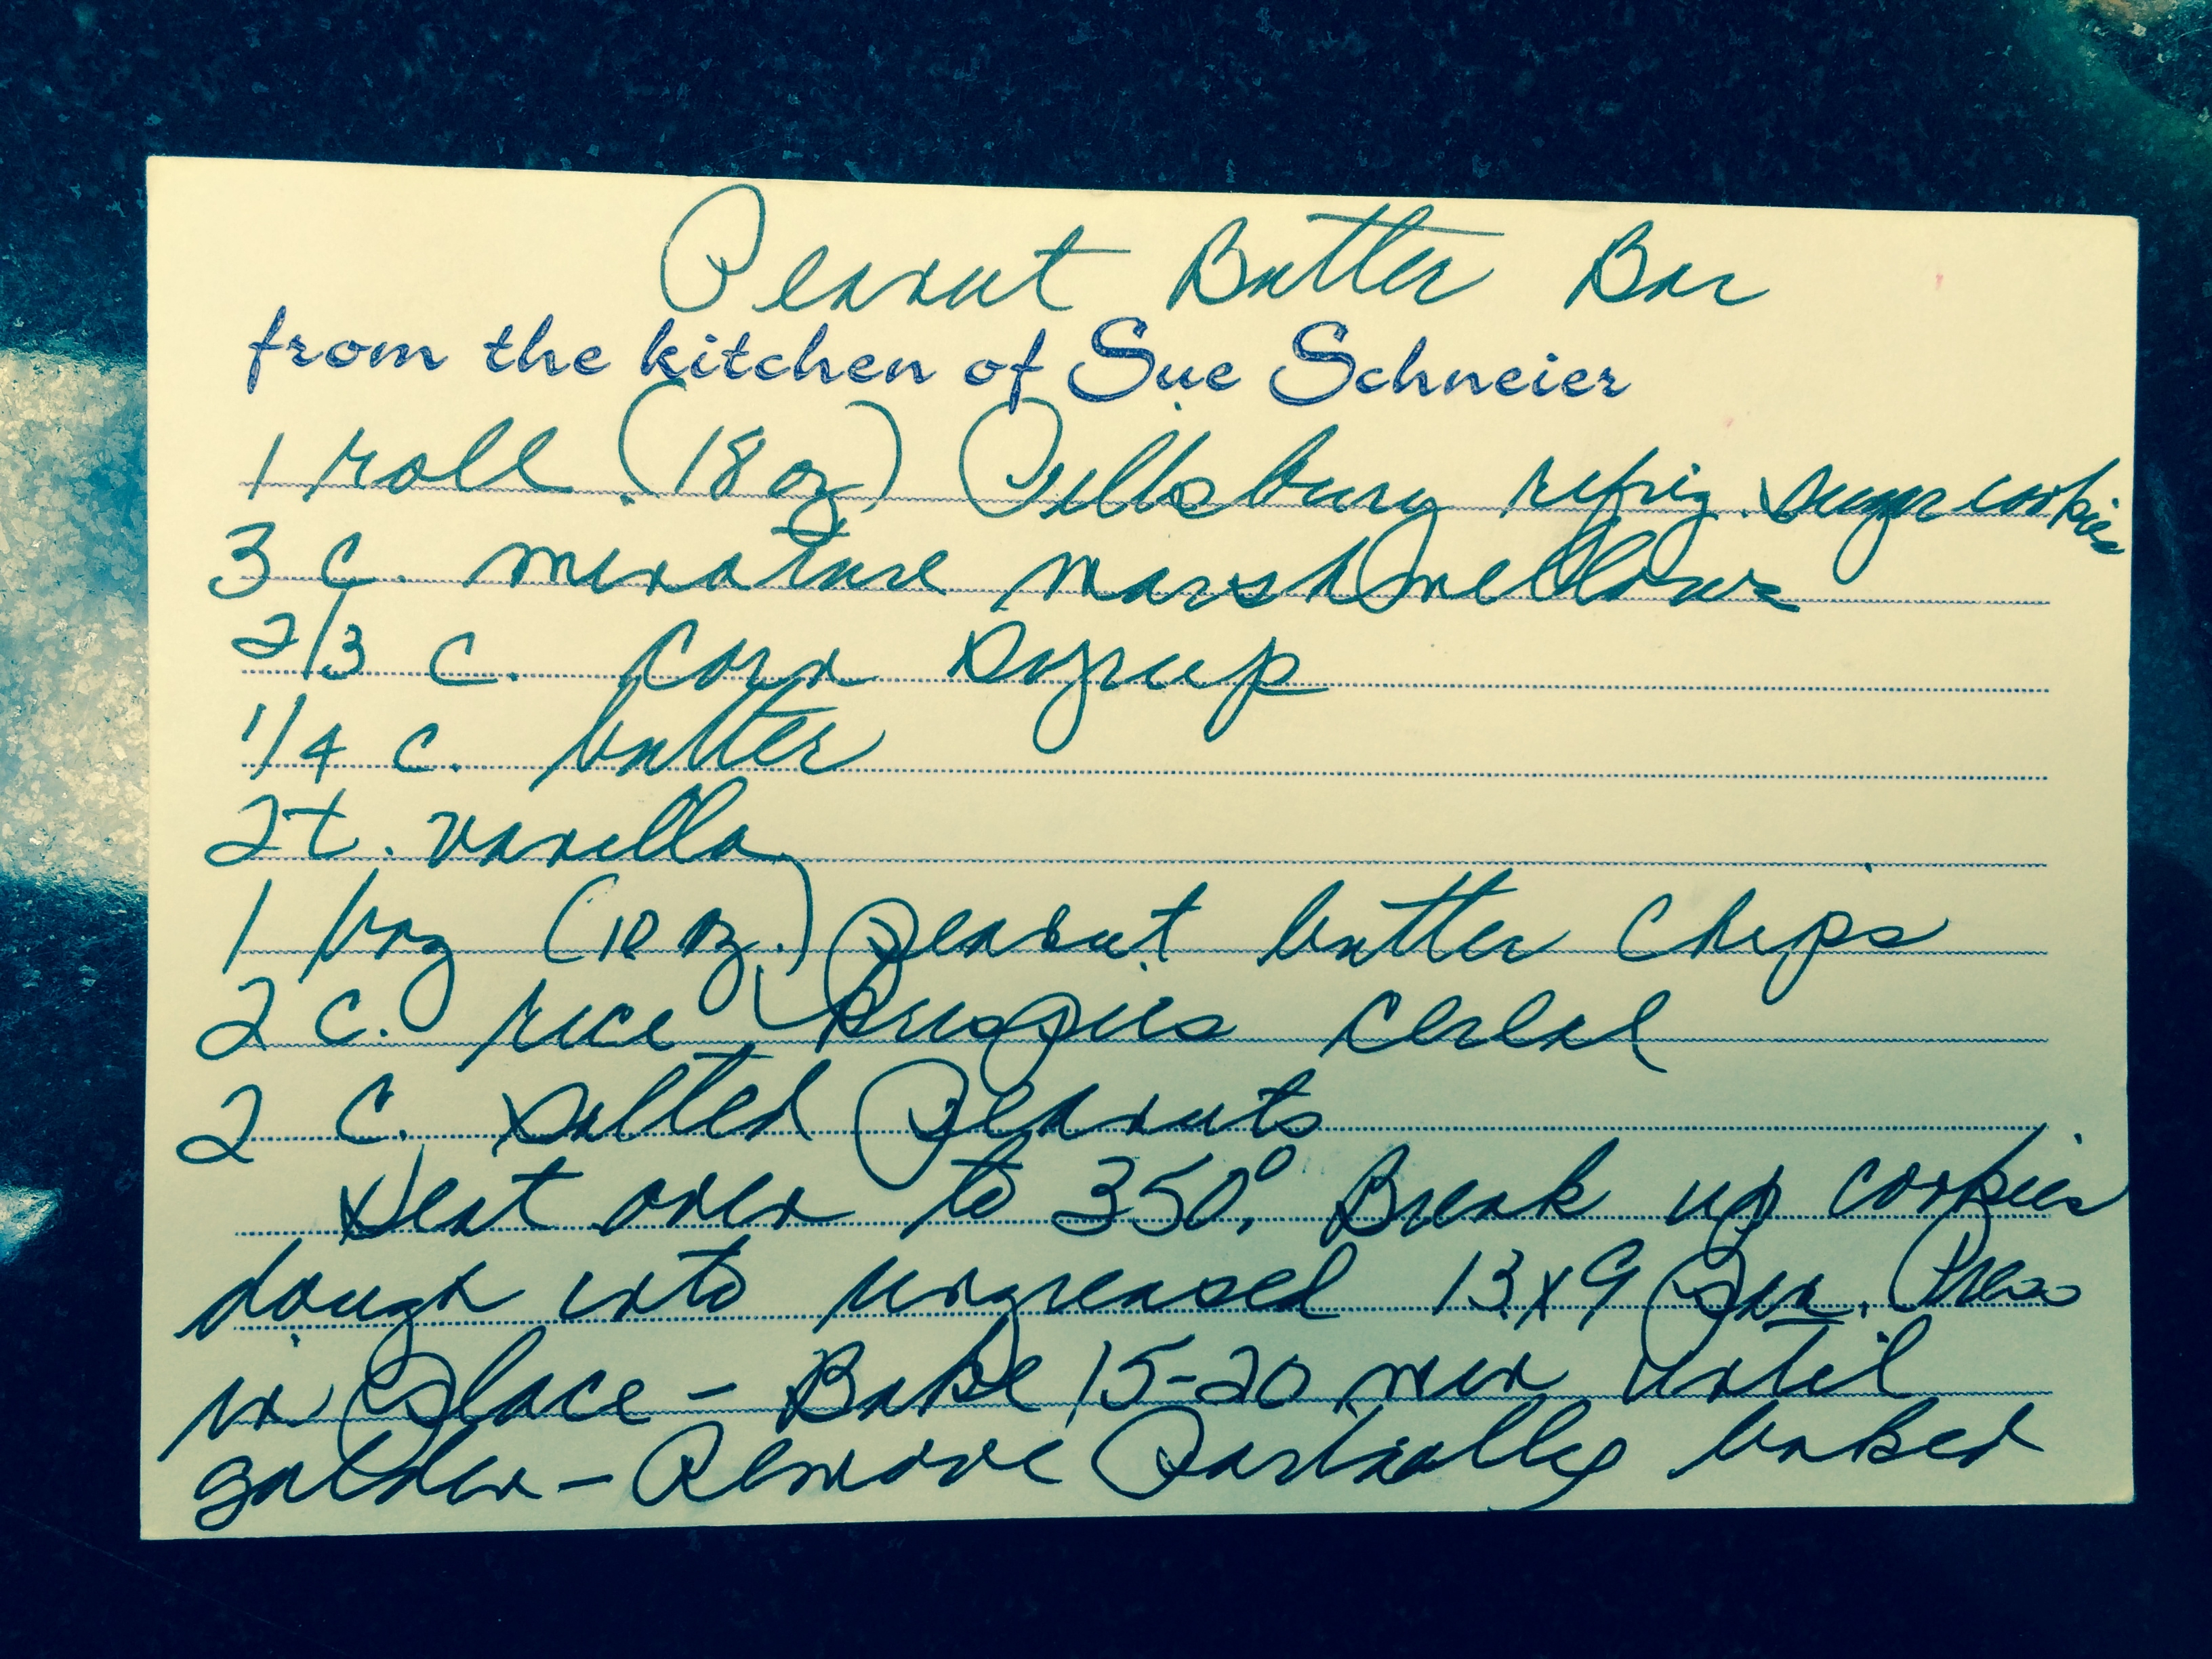 Peanut Butter Bar
from the kitchen of Sue Schneier
1 roll (18 oz) Pillsbury refrig. sugar cookies
3 c. minature marshmellows
2/3 c. corn syrup
1/4 c. butter
2 t. vanilla
1 bag (10 oz.) peanut butter chips
2 c. rice krispies cereal
2 c. salted peanuts
Heat oven to 350°. Break up cookies
dough into ungreased 13x9 pan. Press
in place - Bake 15-20 min until
golden - Remove partially baked